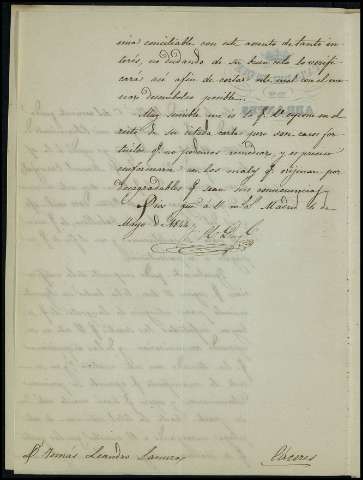 cima conciliable con este asunto de tanto in
terés, no dudando de su buen celo lo verifi
cará así afin de cortar este mal con el me
nor desembolso posible.
Muy sensible me es lo q. V. espone en el
resto de su citada carta pero son casos for
tuitos q. no podemos remediar, y es preciso
conformarse con los males q. originan por
desagradables q. sean sus consecuencias.
Dios gue. á V. m. a. Madrid de
Mayo de 1844
D. Tomás Leandro
Cáceres